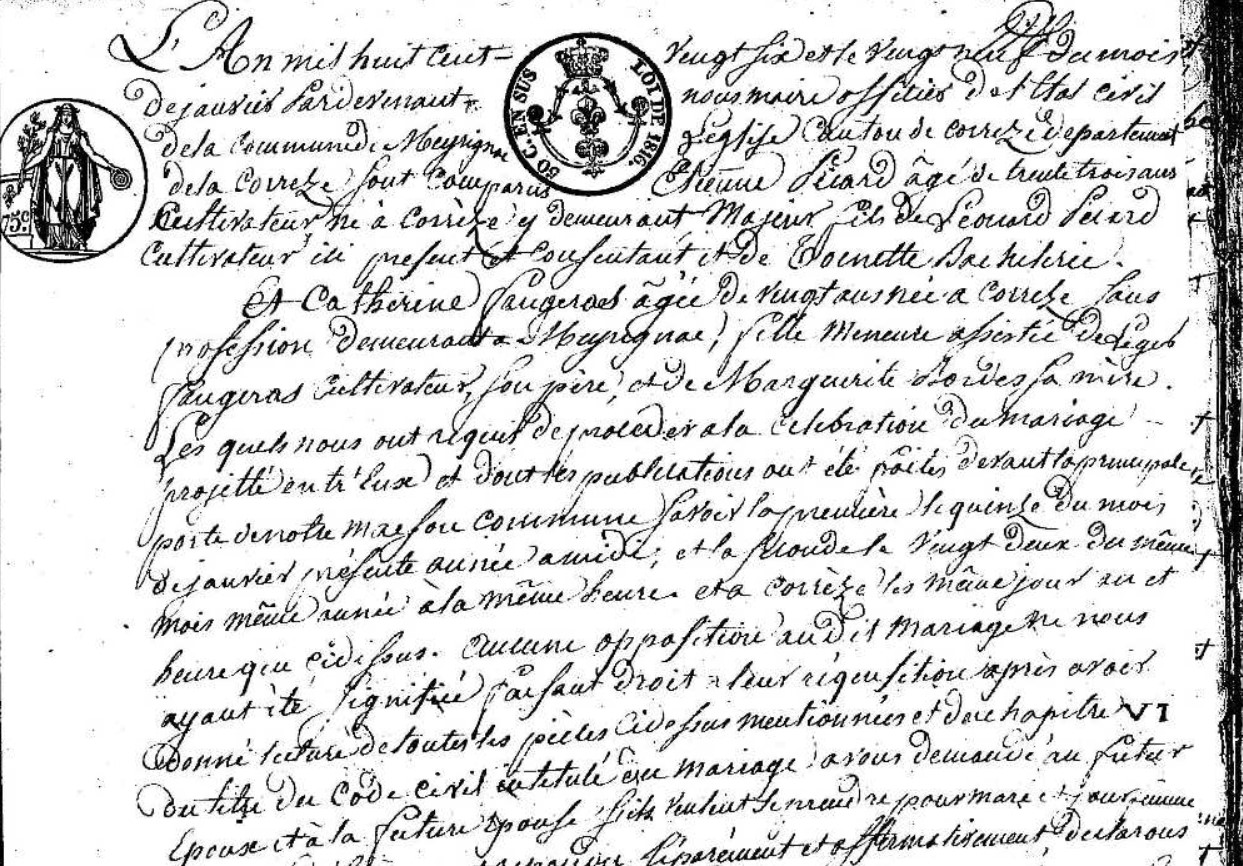 L'An mil huit cent vingt six et le vingt neuf du mois
de janvier Pardevenant nous maire offitier de l'Etat civil
de la Commune de Meyrignac L'église Canton de correze departement
de la Correze sont Comparus Etienne Picard âgé de trente trois ans
Cultivateur né à Corrèze y demeurant Majeur fils de Léonard Picard
Cultivateur ici present et Consentant et de Toinette Bachelerie.
Et Catherine Faugeras âgée de vingt ans née a Correze sans
profession demeurant a Meyrignac, fille Meneure assistée de Léger
Faugeras Cultivateur, son père, et de Marguerite Bordes sa mère.
Les quels nous ont requis de proceder a la celebration du mariage
projetté entr'Eux et dont les publications ont été faites devant la principale
porte de notre maison commune savoir la première le quinze du mois
de janvier présente année a midi, et la seconde le vingt deux du même
mois même année à la même heure. et a corrèze les même jour an et
heure que cidessus. Aucune opposition au dit mariage ne nous
ayant été signifiée faisant droit a leur réquisition après avoir
Donné lecture de toutes les pièces cidessus mentionnées et du chapitre VI
du titre du Code civil intitulé du mariage avons demandé au futur
Epoux et à la future épouse s'ils veulent se prendre pour mari et pour femme
séparément et affirmativement, declarons
50 C. EN SUS LOI DE 1816
75 c